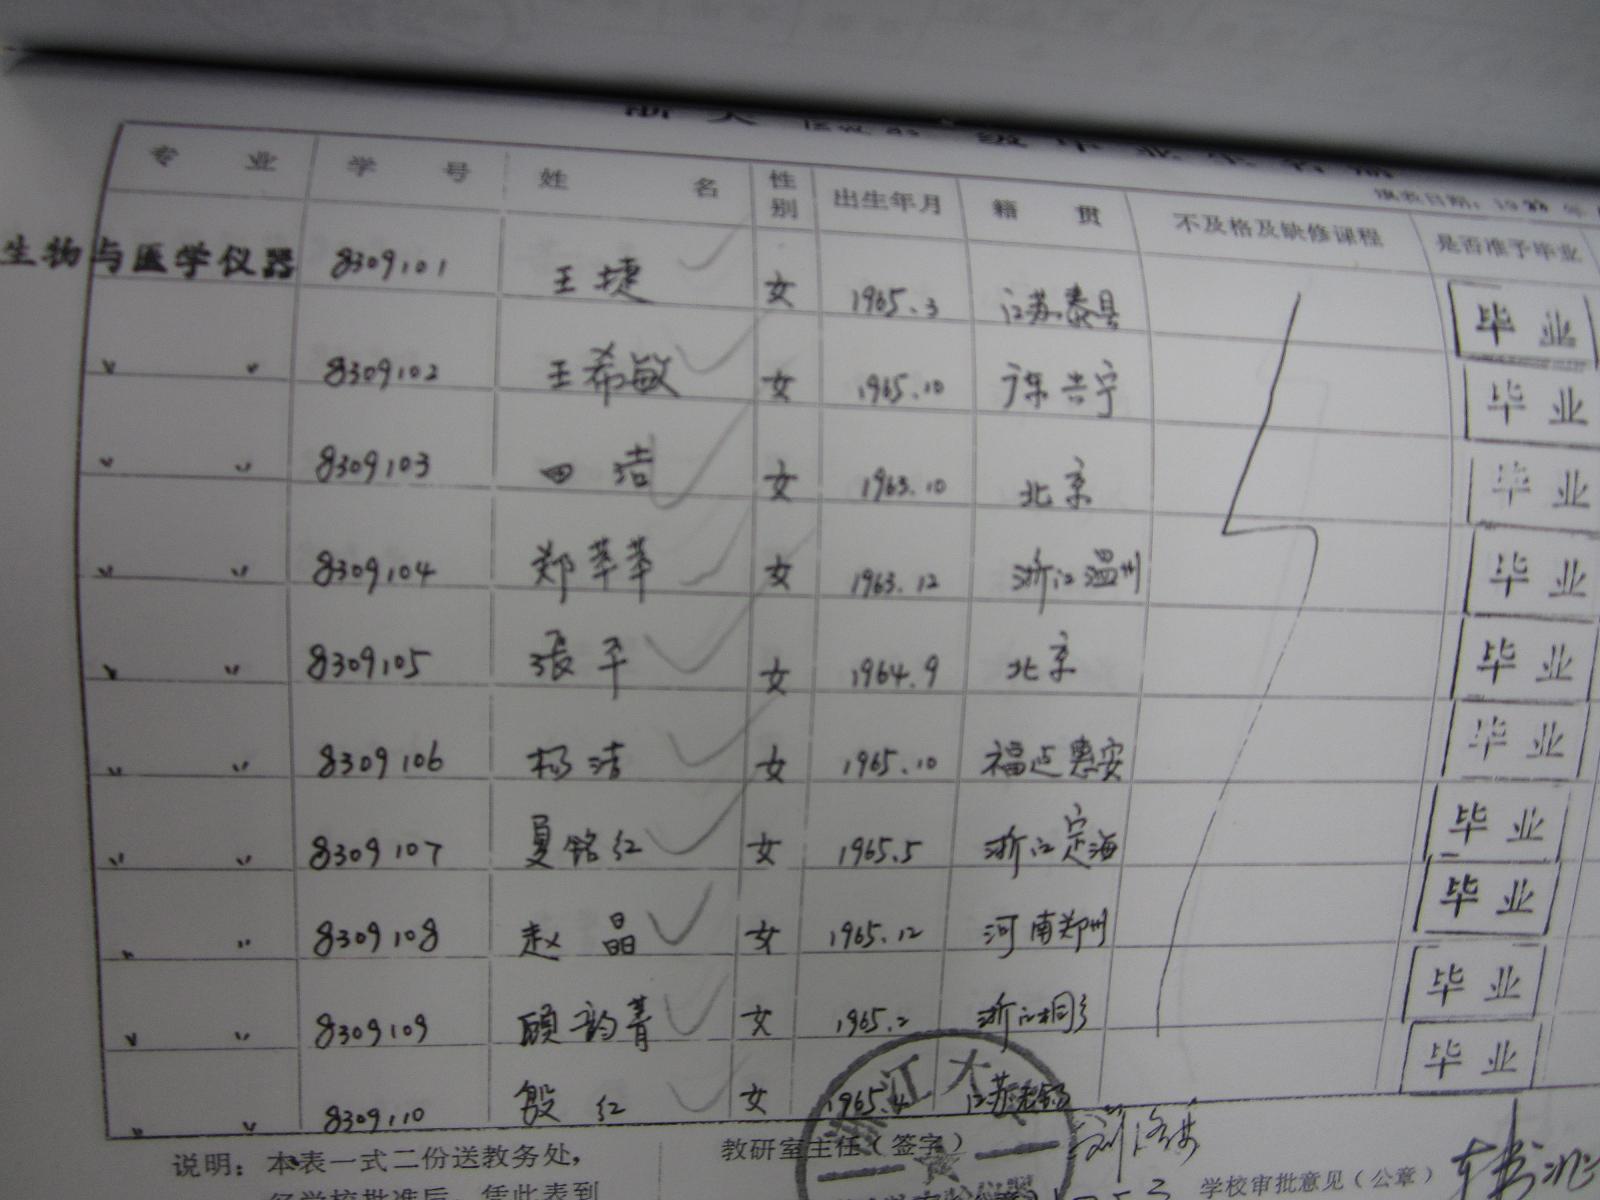 专 业 学 号 姓 名 性别 出生年月 籍 贯 不及格及缺修课程 是否准予毕业
生物与医学仪器 8309101 王捷 女 1965.3 江苏泰县 毕业
〃 〃 8309102 王希敏 女 1965.10 兴宁 毕业
〃 〃 8309103 田洁 女 1963.10 北京 毕业
〃 〃 8309104 郑苹苹 女 1963.12 浙江温州 毕业
〃 〃 8309105 张平 女 1964.9 北京 毕业
〃 〃 8309106 杨洁 女 1965.10 福建惠安 毕业
〃 〃 8309107 夏铭红 女 1965.5 浙江定海 毕业
〃 〃 8309108 赵晶 女 1965.12 河南郑州 毕业
〃 〃 8309109 顾韵菁 女 1965.2 浙江桐乡 毕业
〃 〃 8309110 殷红 女 1965.4 江苏无锡 毕业
说明：本表一式二份送教务处， 教研室主任（签字） 学校审批意见（公章）
经学校批准后，凭此表到